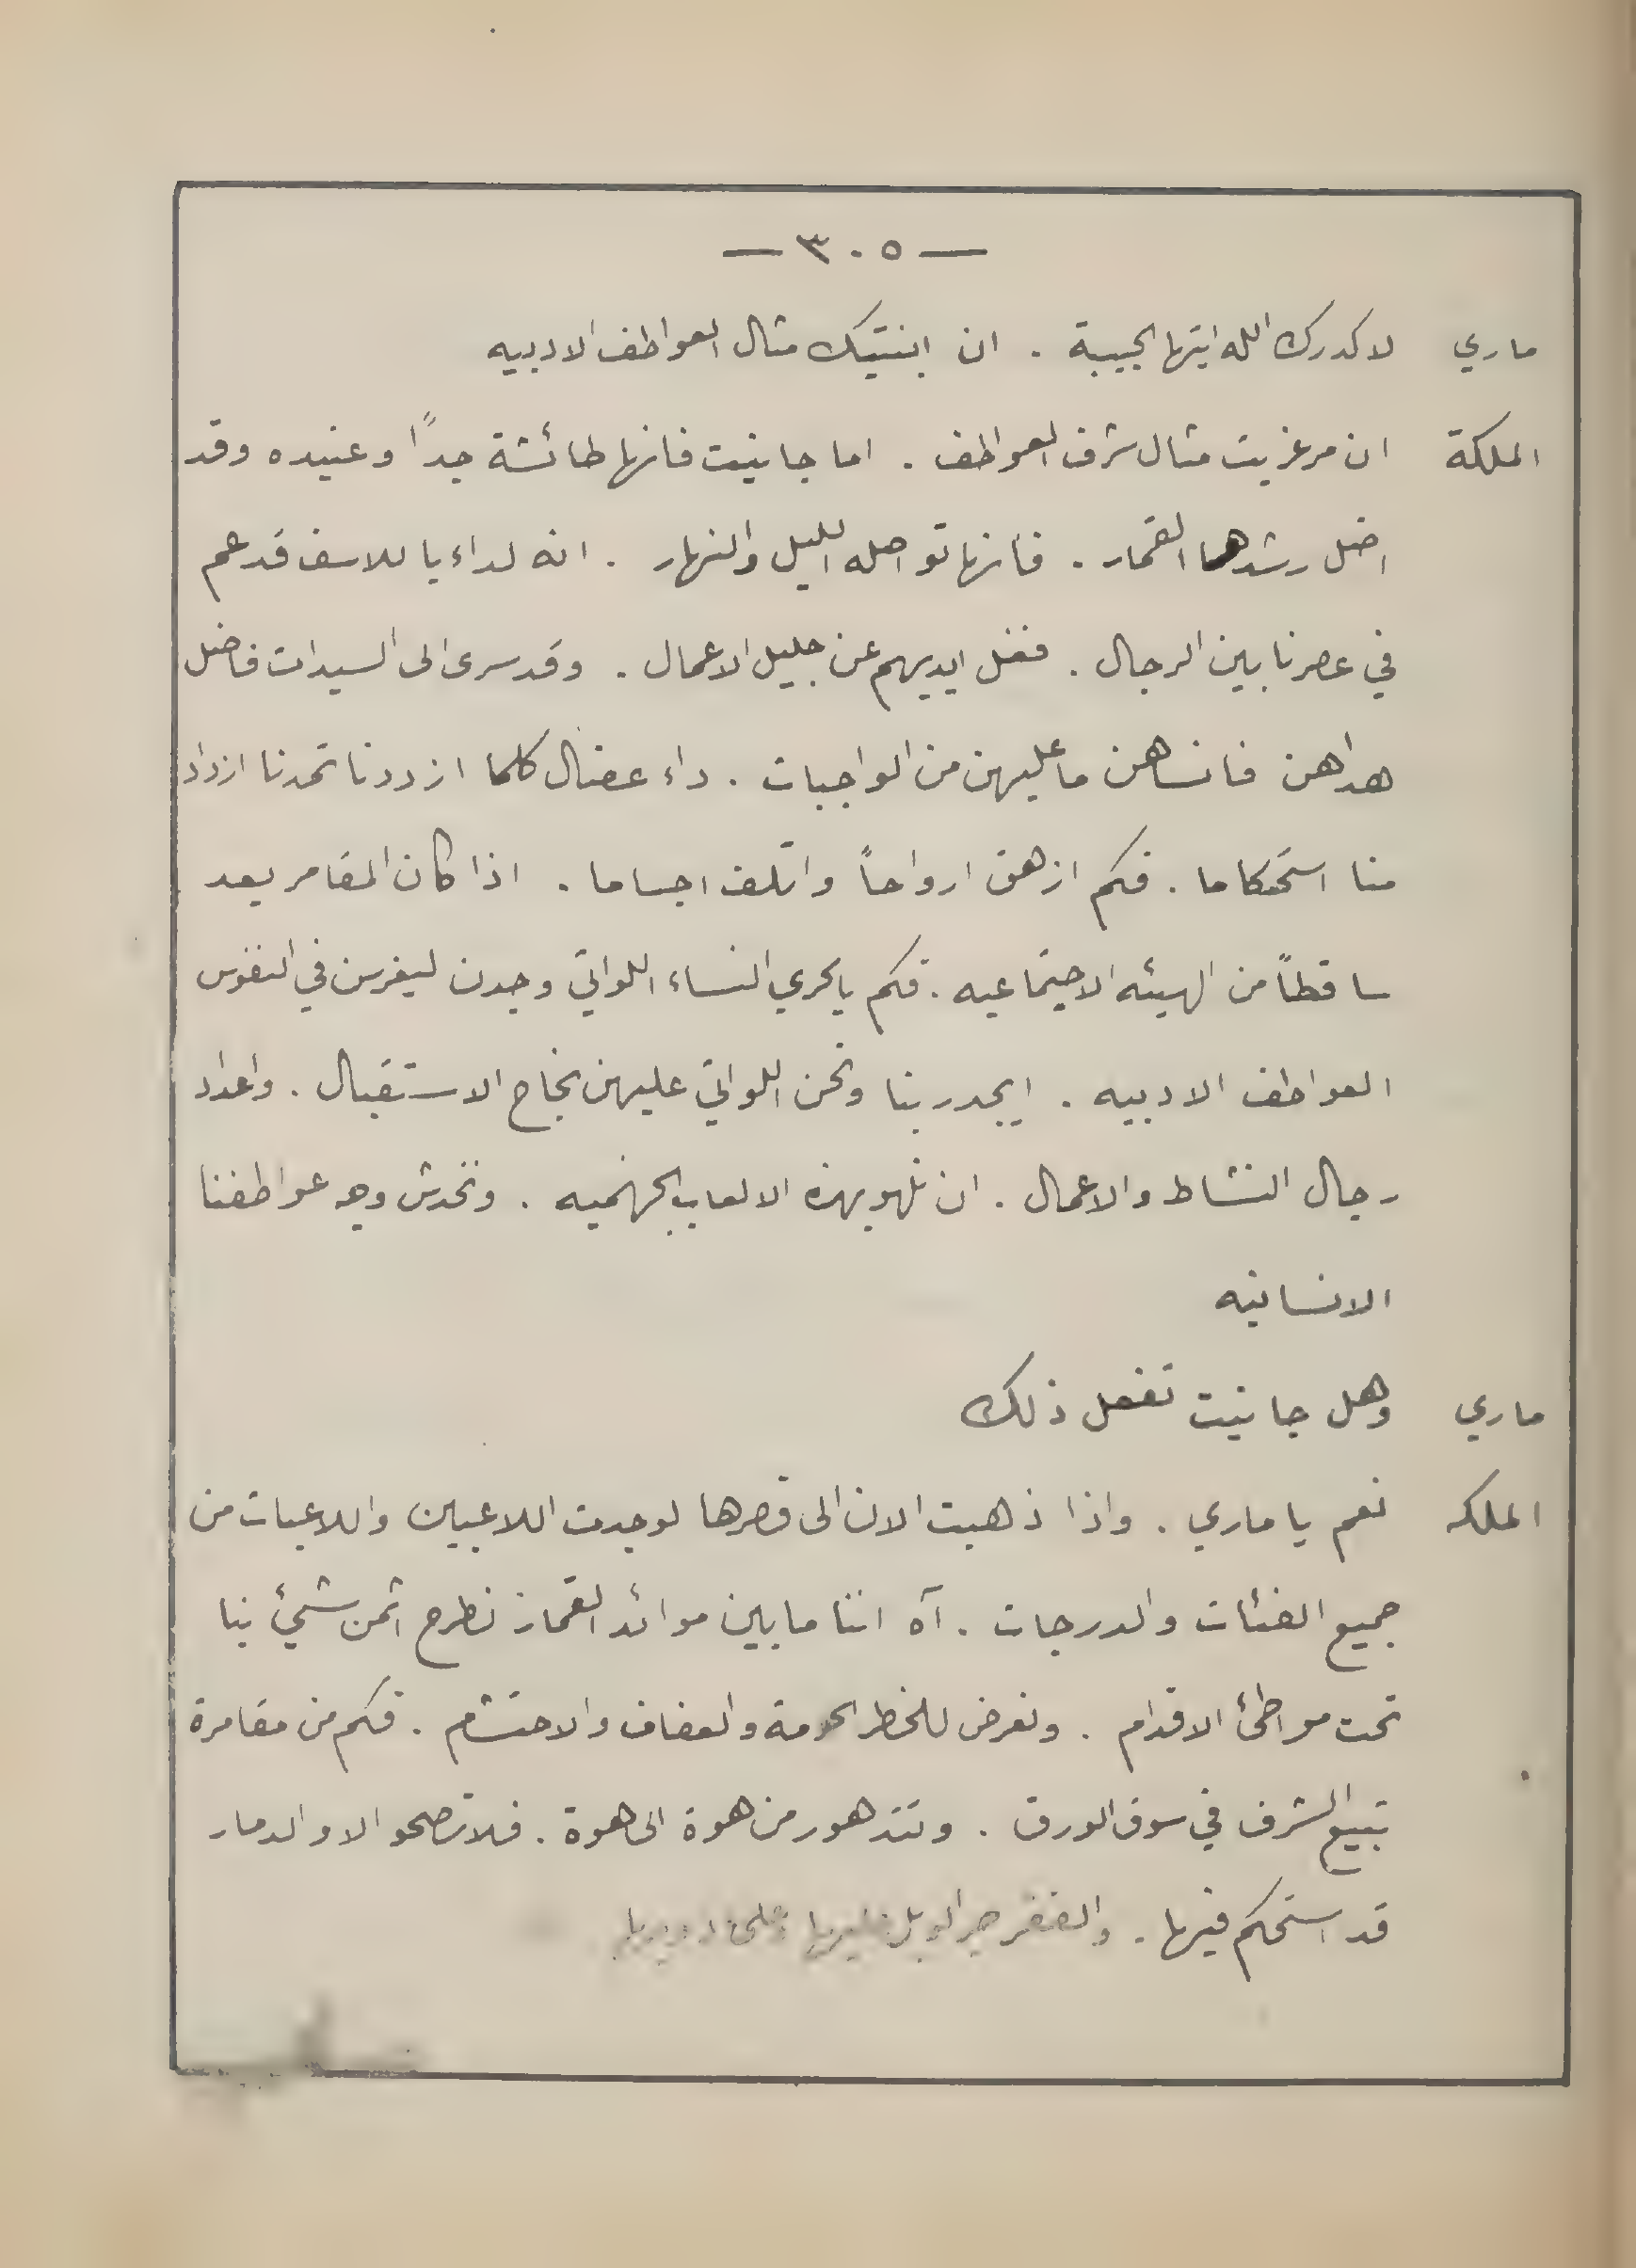 — ٣٠٥ —
ماري لا كدرك الله ايتها الحبيبة . ان ابنتيك مثال العواطف الادبيه
الملكة ان مرغريت مثال شرف العواطف . اما جانيت فانها طائشة جداً وعنيده وقد
اضل رشدها القمار . فانها تواصله الليل والنهار . انه لداء يا للاسف قد عم
في عصرنا بين الرجال . فغل ايديهم عن جليل الاعمال . وقد سرى الى السيدات فاضل
هداهن فانساهن ما عليهن من الواجبات . داء عضال كلما ازددنا تمدنا ازداد
منا استحكاما . فكم ازهق ارواحاً واتلف اجساما . اذا كان المقامر يعد
ساقطاً من الهيئه الاجتماعيه . فكم بالحري النساء اللواتي وجدن ليغرسن في النفوس
العواطف الادبيه . ايجدر بنا ونحن اللواتي عليهن نجاح الاستقبال . واعداد
رجال النشاط والاعمال . ان نلهو بهذه الالعاب الجهنميه . ونخدش وجه عواطفنا
الانسانيه
ماري وهل جانيت تفعل ذلك
الملكه نعم يا ماري . واذا ذهبت الان الى قصرها لوجدت اللاعبين واللاعبات من
جميع الفئات والدرجات . آه اننا ما بين موائد القمار نطرح اثمن شيئ بنا
تحت مواطئ الاقدام . ونعرض للخطر الحرمة والعفاف والاحتشام . فكم من مقامرة
تبيع الشرف في سوق الورق . وتتدهور من هوة الى هوة . فلا تصحو الا والدمار
قد استحكم فيها . والفقر جر الويل عليها وعلى